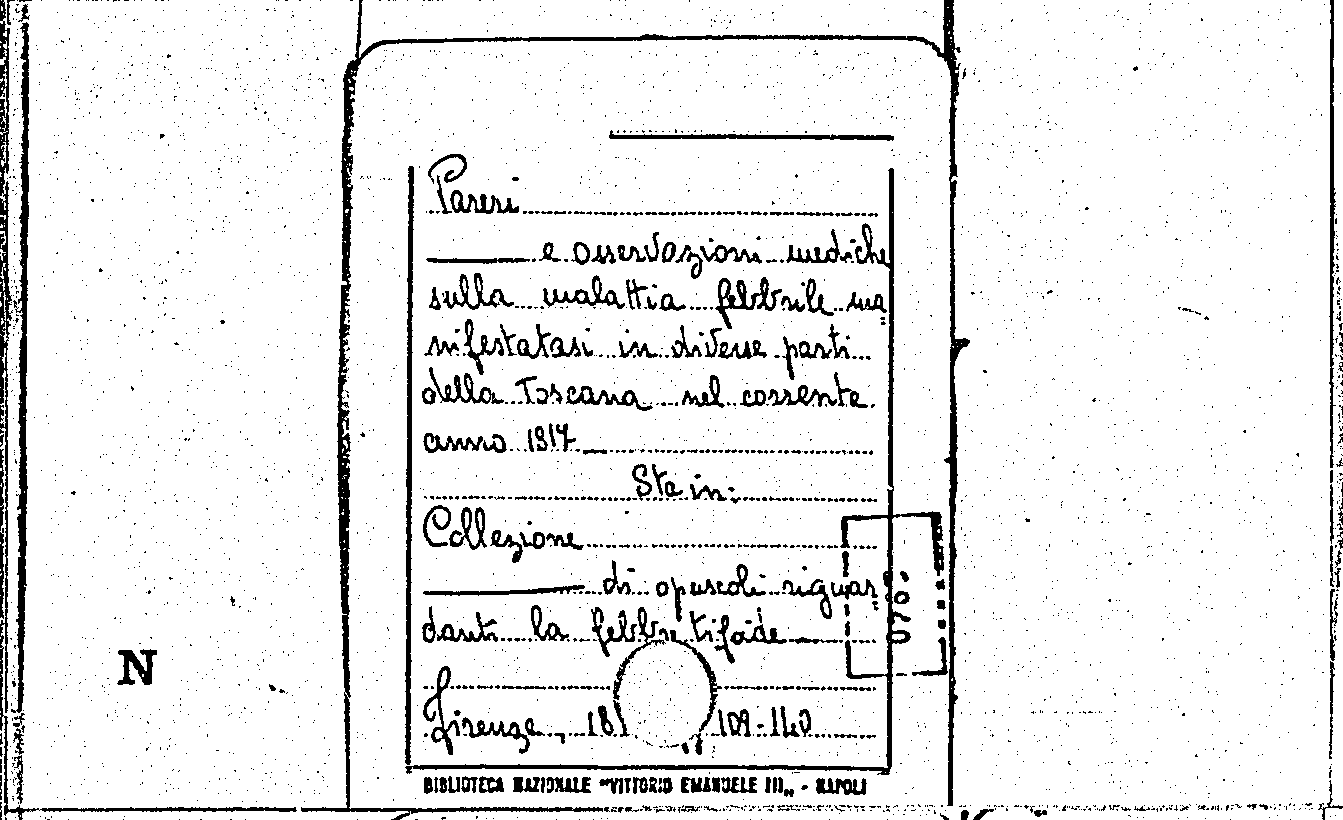 Pareri
e osservazioni mediche
sulla malattia febbrile ma=
nifestatasi in diverse parti
della Toscana nel corrente
anno 1817
Sta in:
Collezione
di opuscoli riguar=
danti la febbre tifoide
Firenze, 18 109-140
BIBLIOTECA NAZIONALE "VITTORIO EMANUELE III„ - NAPOLI
N